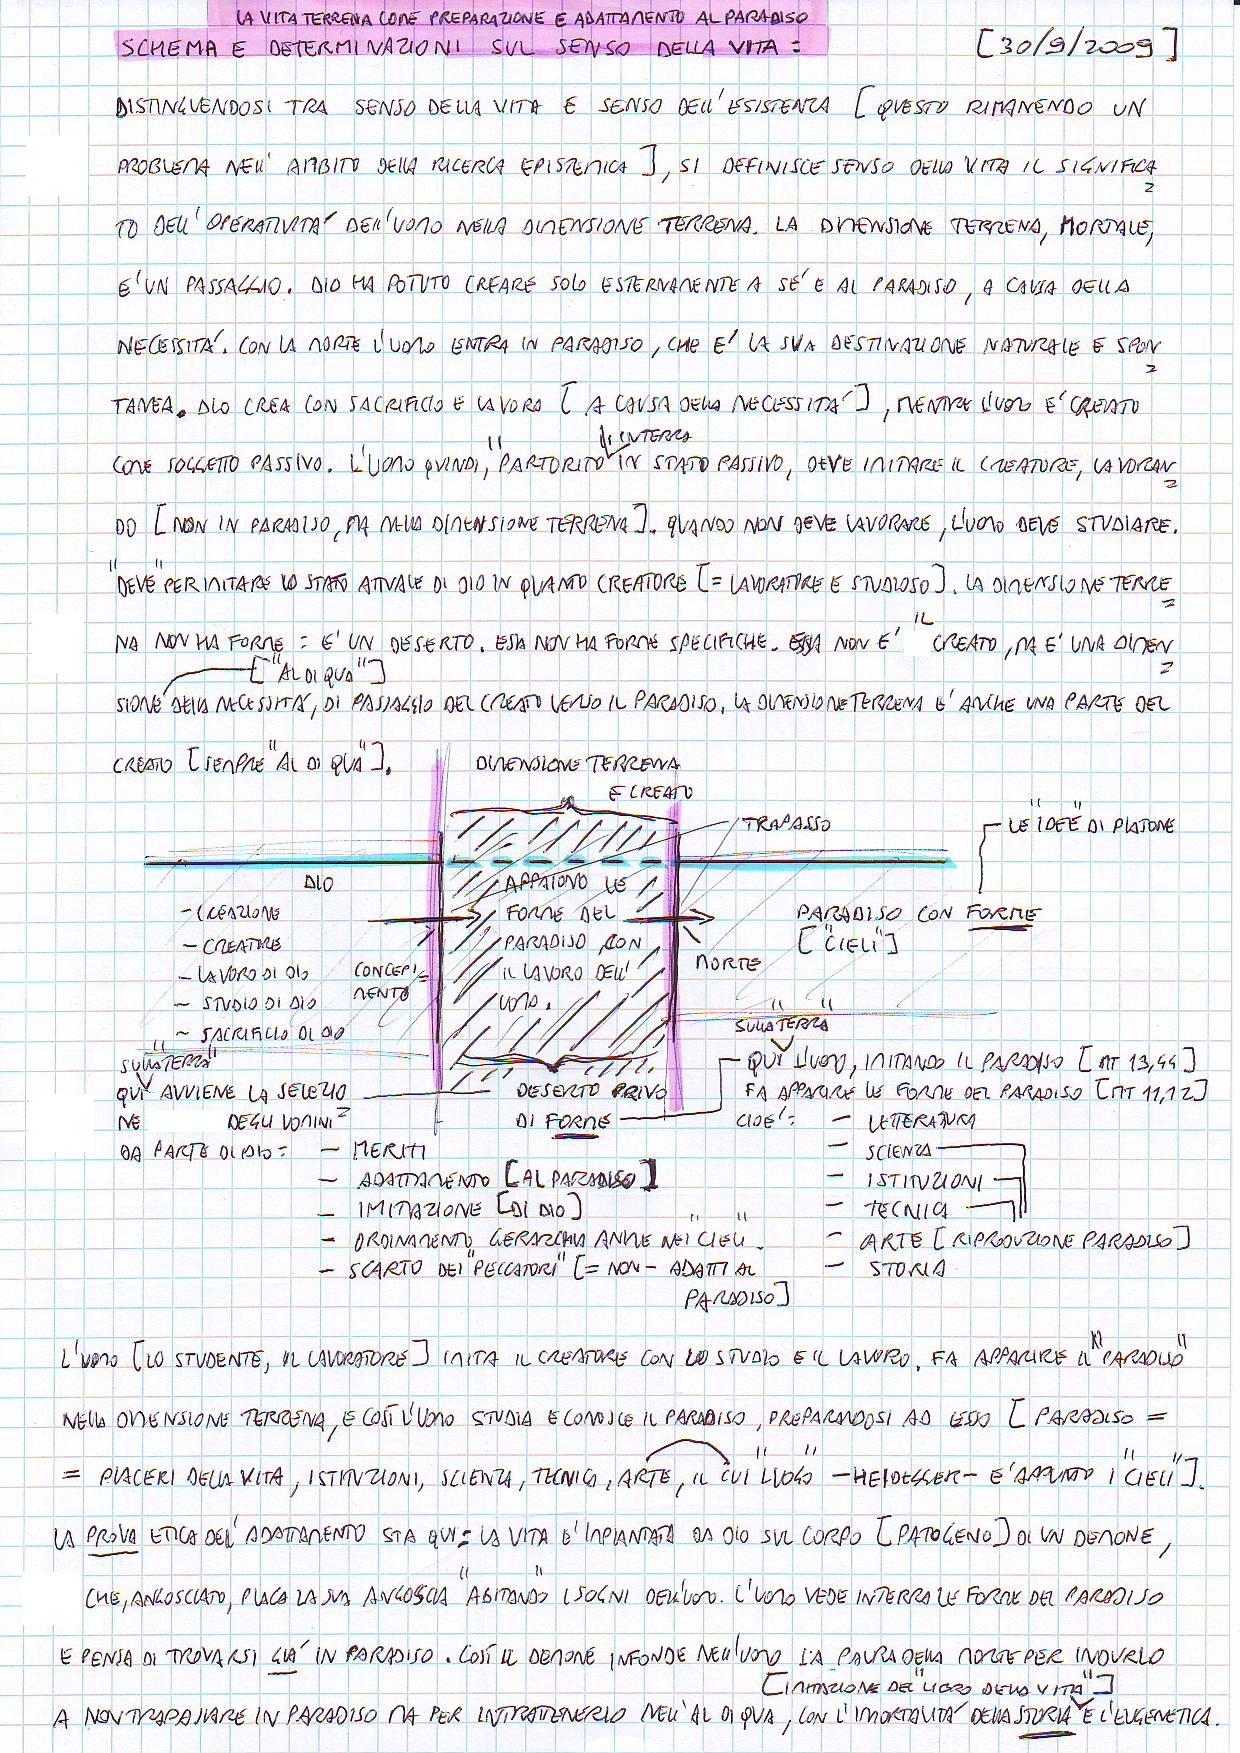 LA VITA TERRENA COME PREPARAZIONE E ADATTAMENTO AL PARADISO
SCHEMA E DETERMINAZIONI SUL SENSO DELLA VITA = [30/9/2009]
DISTINGUENDOSI TRA SENSO DELLA VITA E SENSO DELL'ESISTENZA [QUESTO RIMANENDO UN
PROBLEMA NELL'AMBITO DELLA RICERCA EPISTEMICA], SI DEFINISCE SENSO DELLA VITA IL SIGNIFICA=
TO DELL'OPERATIVITA' DELL'UOMO NELLA DIMENSIONE TERRENA. LA DIMENSIONE TERRENA, MORTALE,
E' UN PASSAGGIO. DIO HA POTUTO CREARE SOLO ESTERNAMENTE A SE' E AL PARADISO, A CAUSA DELLA
NECESSITA'. CON LA MORTE L'UOMO ENTRA IN PARADISO, CHE E' LA SUA DESTINAZIONE NATURALE E SPON=
TANEA. DIO CREA CON SACRIFICIO E LAVORO [A CAUSA DELLA NECESSITA'], MENTRE L'UOMO E' CREATO
COME SOGGETTO PASSIVO. L'UOMO QUINDI, "PARTORITO" IN TERRA IN STATO PASSIVO, DEVE IMITARE IL CREATORE, LAVORAN=
DO [NON IN PARADISO, MA NELLA DIMENSIONE TERRENA]. QUANDO NON DEVE LAVORARE, L'UOMO DEVE STUDIARE.
"DEVE" PER IMITARE LO STATO ATTUALE DI DIO IN QUANTO CREATORE [= LAVORATORE E STUDIOSO]. LA DIMENSIONE TERRE=
NA NON HA FORME = E' UN DESERTO. ESSA NON HA FORME SPECIFICHE. ESSA NON E' IL CREATO, MA E' UNA DIMEN=
["AL DI QUA"]
SIONE DELLA NECESSITA', DI PASSAGGIO DEL CREATO VERSO IL PARADISO. LA DIMENSIONE TERRENA E' ANCHE UNA PARTE DEL
CREATO [SEMPRE "AL DI QUA"].
DIMENSIONE TERRENA
E CREATO
TRAPASSO
LE "IDEE" DI PLATONE
DIO
- CREAZIONE
- CREATORE
- LAVORO DI DIO
- STUDIO DI DIO
- SACRIFICIO DI DIO
CONCEPI=
MENTO
APPAIONO LE
FORME DEL
PARADISO, CON
IL LAVORO DELL'
UOMO.
MORTE
PARADISO CON FORME
["CIELI"]
"SULLA TERRA"
QUI AVVIENE LA SELEZIO=
NE DEGLI UOMINI
DA PARTE DI DIO =
- MERITI
- ADATTAMENTO [AL PARADISO]
- IMITAZIONE [DI DIO]
- ORDINAMENTO GERARCHIA ANCHE NEI "CIELI".
- SCARTO DEI "PECCATORI" [= NON-ADATTI AL
PARADISO]
DESERTO PRIVO
DI FORME
"SULLA TERRA"
QUI L'UOMO, IMITANDO IL PARADISO [MT 13,44]
FA APPARIRE LE FORME DEL PARADISO [MT 11,12]
CIOE' =
- LETTERATURA
- SCIENZA
- ISTITUZIONI
- TECNICA
- ARTE [RIPRODUZIONE PARADISO]
- STORIA
L'UOMO [LO STUDENTE, IL LAVORATORE] IMITA IL CREATORE CON LO STUDIO E IL LAVORO. FA APPARIRE IL "PARADISO"
NELLA DIMENSIONE TERRENA, E COSI' L'UOMO STUDIA E CONOSCE IL PARADISO, PREPARANDOSI AD ESSO [PARADISO =
= PIACERI DELLA VITA, ISTITUZIONI, SCIENZA, TECNICA, ARTE, IL CUI "LUOGO" -HEIDEGGER- E' APPUNTO I "CIELI"].
LA PROVA ETICA DELL'ADATTAMENTO STA QUI = LA VITA E' IMPIANTATA DA DIO SUL CORPO [PATOGENO] DI UN DEMONE,
CHE, ANGOSCIATO, PLACA LA SUA ANGOSCIA "ABITANDO" I SOGNI DELL'UOMO. L'UOMO VEDE IN TERRA LE FORME DEL PARADISO
E PENSA DI TROVARSI GIA' IN PARADISO. COSI' IL DEMONE INFONDE NELL'UOMO LA PAURA DELLA MORTE PER INDURLO
[IMITAZIONE DEL "LIBRO DELLA VITA"]
A NON TRAPASSARE IN PARADISO MA PER INTRATTENERLO NELL'AL DI QUA, CON L'IMMORTALITA' DELLA STORIA E L'EUGENETICA.